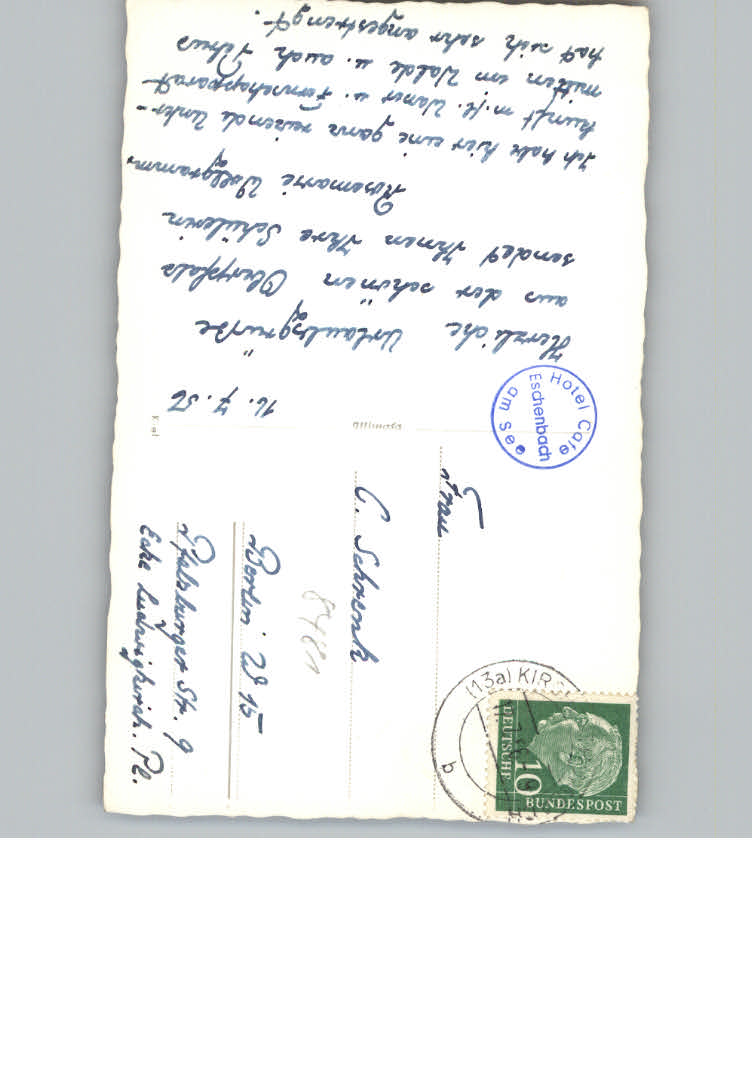 16. 7. 56
Herzliche Urlaubsgrüße
aus der schönen Oberpfalz
sendet Ihnen Ihre Schülerin
Rosemarie Wollgramm.
Ich habe hier eine ganz reizende Unter-
kunft m. fl. Wasser u. Fernsehapparat
mitten im Walde u. auch
hat sich sehr angestrengt.
Hotel Cafe
Eschenbach
am See
Ultimata
Frau
C. Schrenk
8481
Berlin W 15
Pfalzburger Str. 9
Ecke Ludwigkirch. Pl.
(13a) KIRCH
b
DEUTSCHE
10
BUNDESPOST